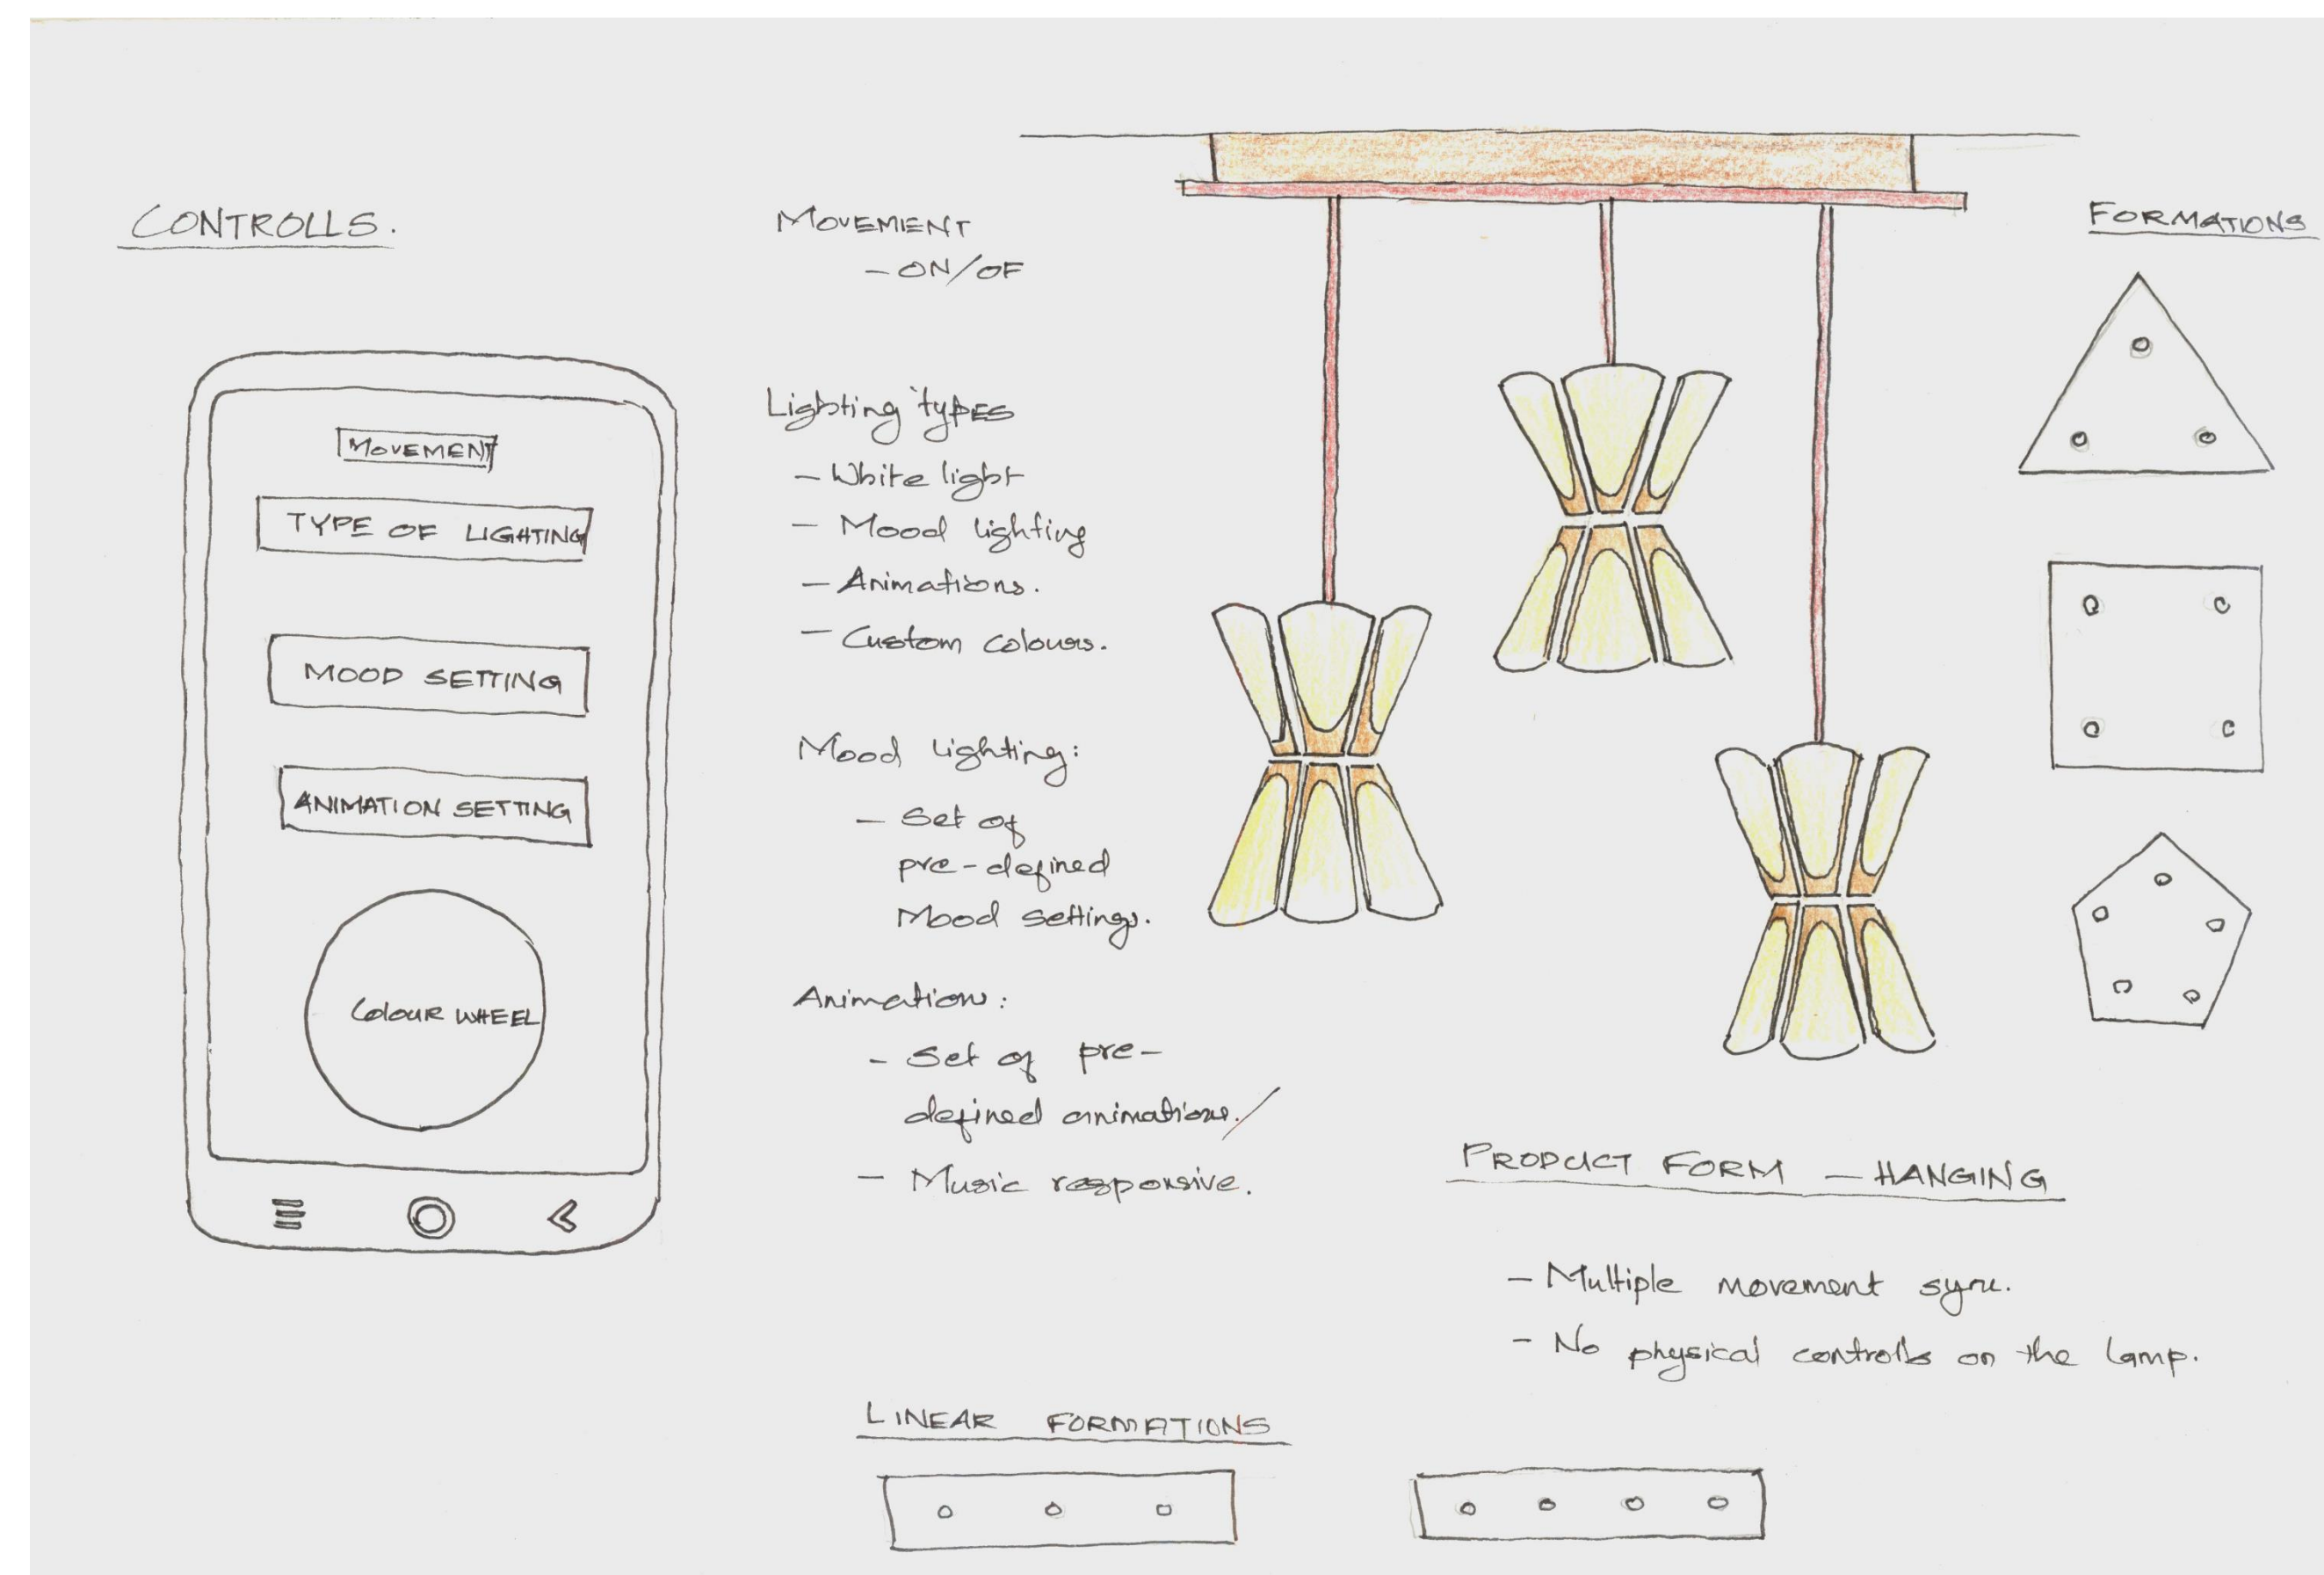 CONTROLLS.
MOVEMENT
TYPE OF LIGHTING
MOOD SETTING
ANIMATION SETTING
COLOUR WHEEL
MOVEMENT
- ON/OF
Lighting types
- White light
- Mood lighting
- Animations.
- Custom colours.
Mood lighting:
- Set of
pre-defined
Mood settings.
Animation:
- Set of pre-
defined animations./
- Music responsive.
FORMATIONS
PRODUCT FORM - HANGING
- Multiple movement sync.
- No physical controlls on the lamp.
LINEAR FORMATIONS